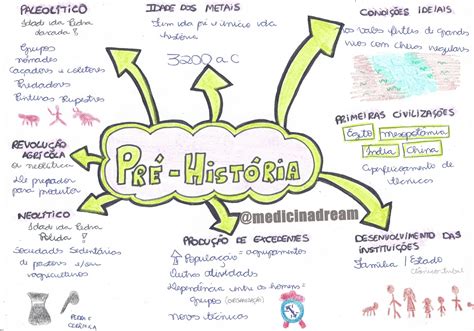 PALEOLÍTICO
Idade da Pedra
Lascada!
Grupos
nômades
Caçadores e coletores
Predadores
Pinturas Rupestres
IDADE DOS METAIS
Fim da pré e início da
história
3200 a.C
CONDIÇÕES IDEIAIS
nos vales férteis de Grandes
rios com cheias regulares
PRIMEIRAS CIVILIZAÇÕES
Egito Mesopotamia
India China
Aperfeiçoamento de
técnicas
REVOLUÇÃO
AGRÍCOLA
ou neolítica
De predador
para produtor
PRÉ-HISTÓRIA
@medicinadream
NEOLÍTICO
Idade da Pedra
Polida!
Sociedades Sedentárias
de pastores e/ou
agricultores
PEDRA E
CERÂMICA
PRODUÇÃO DE EXCEDENTES
População = agrupamentos
Outras atividades
Dependência entre os homens e
grupos
novas técnicas
DESENVOLVIMENTO DAS
INSTITUIÇÕES
Família / Estado